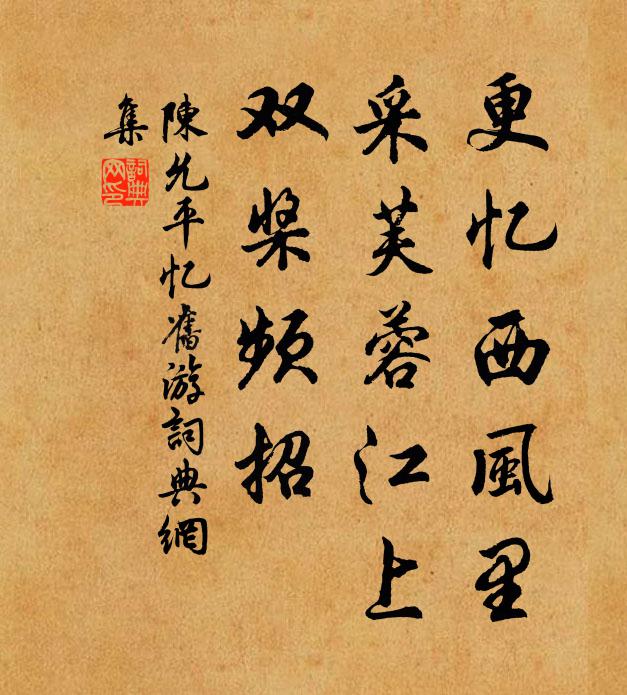 更忆西風里
采芙蓉江上
双桨频招
陳允平忆舊游詞典網
集
詞典
网印